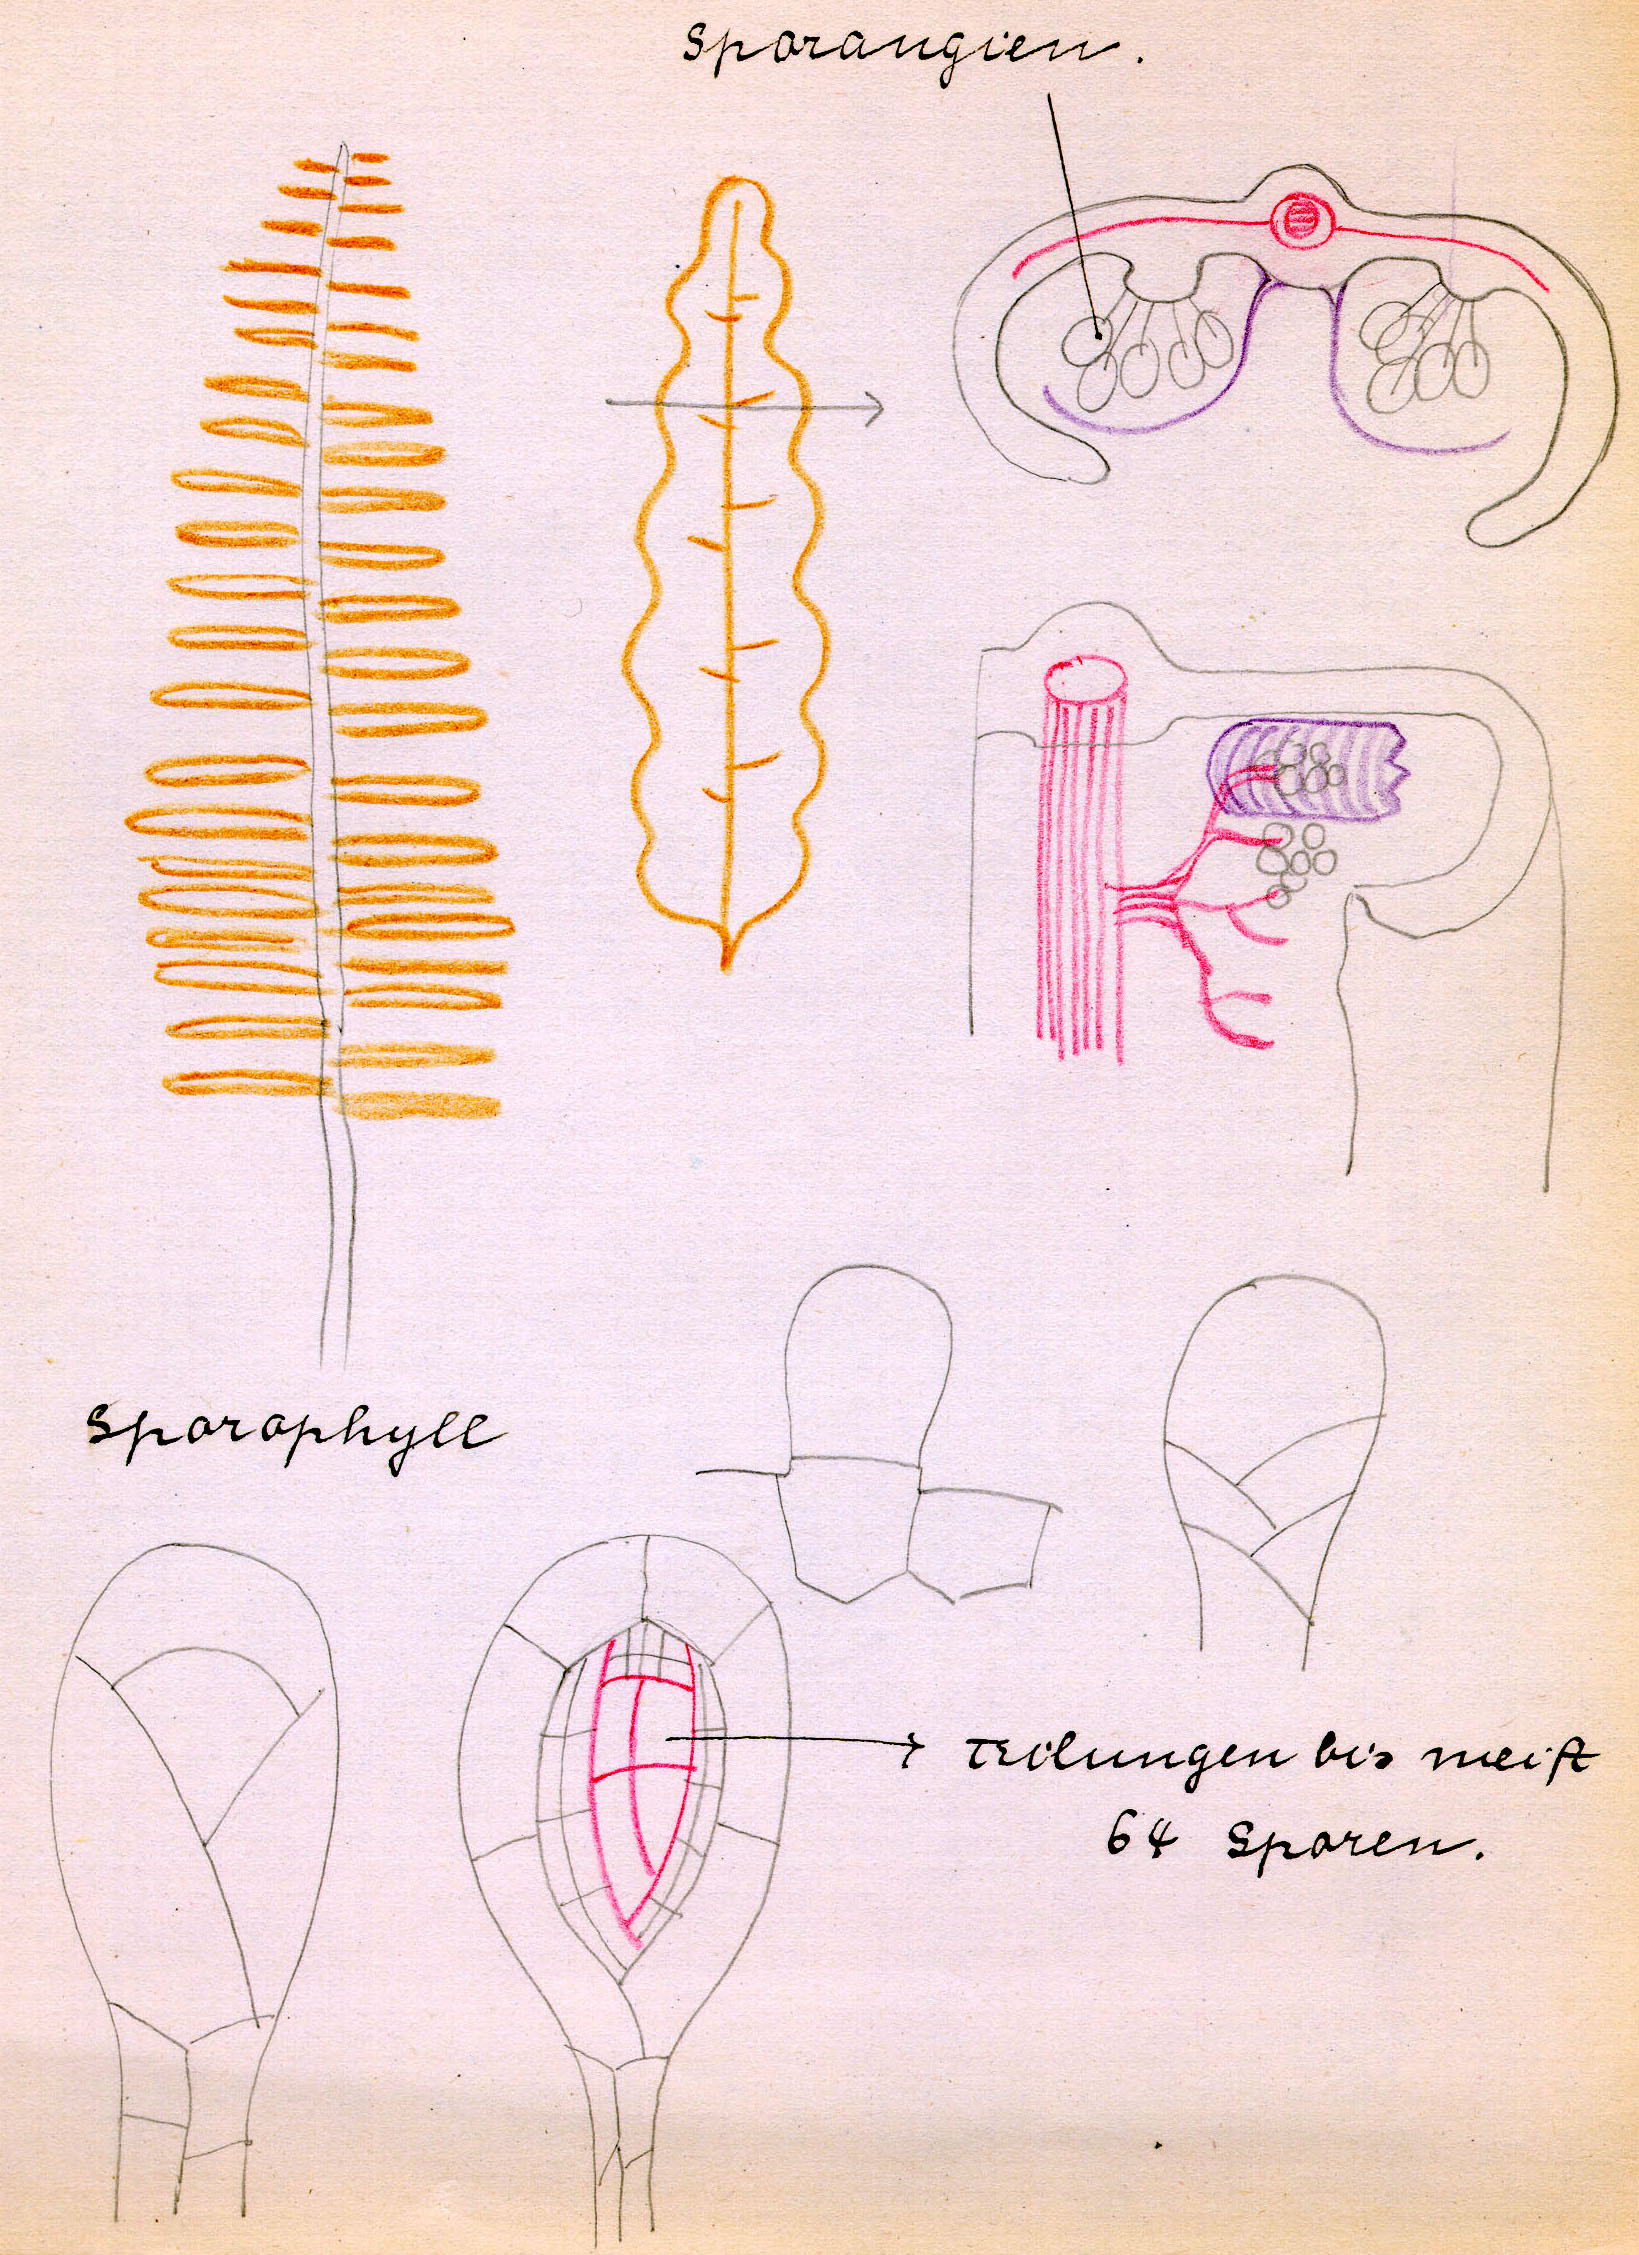 Sporangien.
Sporophyll
Teilungen bis meist
64 Sporen.